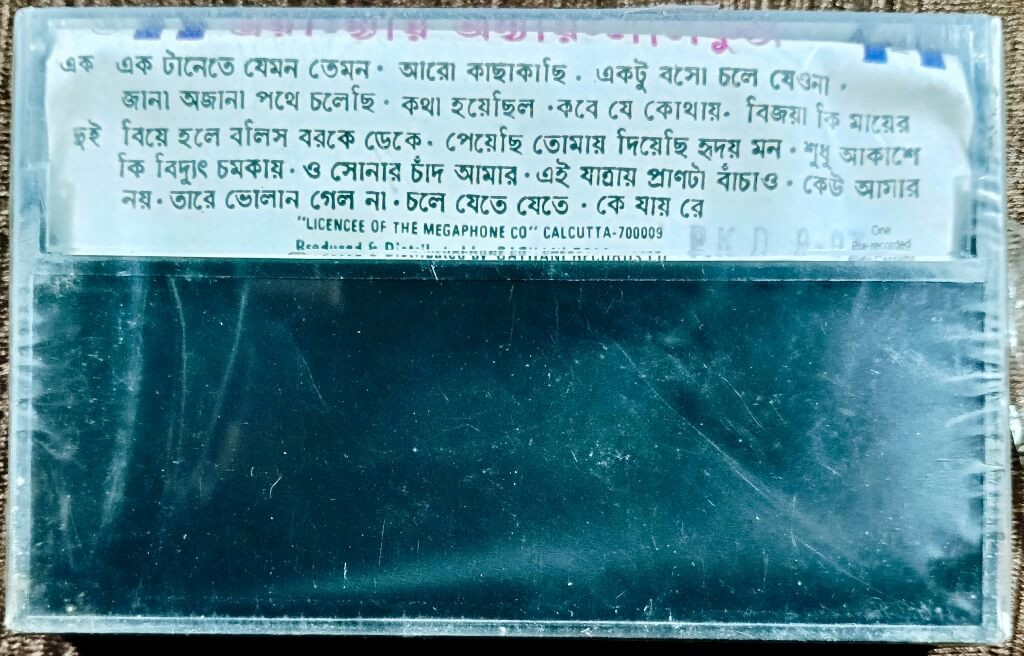 এক এক টানেতে যেমন তেমন · আরো কাছাকাছি · একটু বসো চলে যেওনা ·
জানা অজানা পথে চলেছি · কথা হয়েছিল · কবে যে কোথায় · বিজয়া কি মায়ের
দুই বিয়ে হলে বলিস বরকে ডেকে · পেয়েছি তোমায় দিয়েছি হৃদয় মন · শুধু আকাশে
কি বিদ্যুৎ চমকায় · ও সোনার চাঁদ আমার · এই যাত্রায় প্রাণটা বাঁচাও · কেউ আমার
নয় · তারে ভোলান গেল না · চলে যেতে যেতে · কে যায় রে
"LICENCEE OF THE MEGAPHONE CO" CALCUTTA-700009
One
Pre-recorded